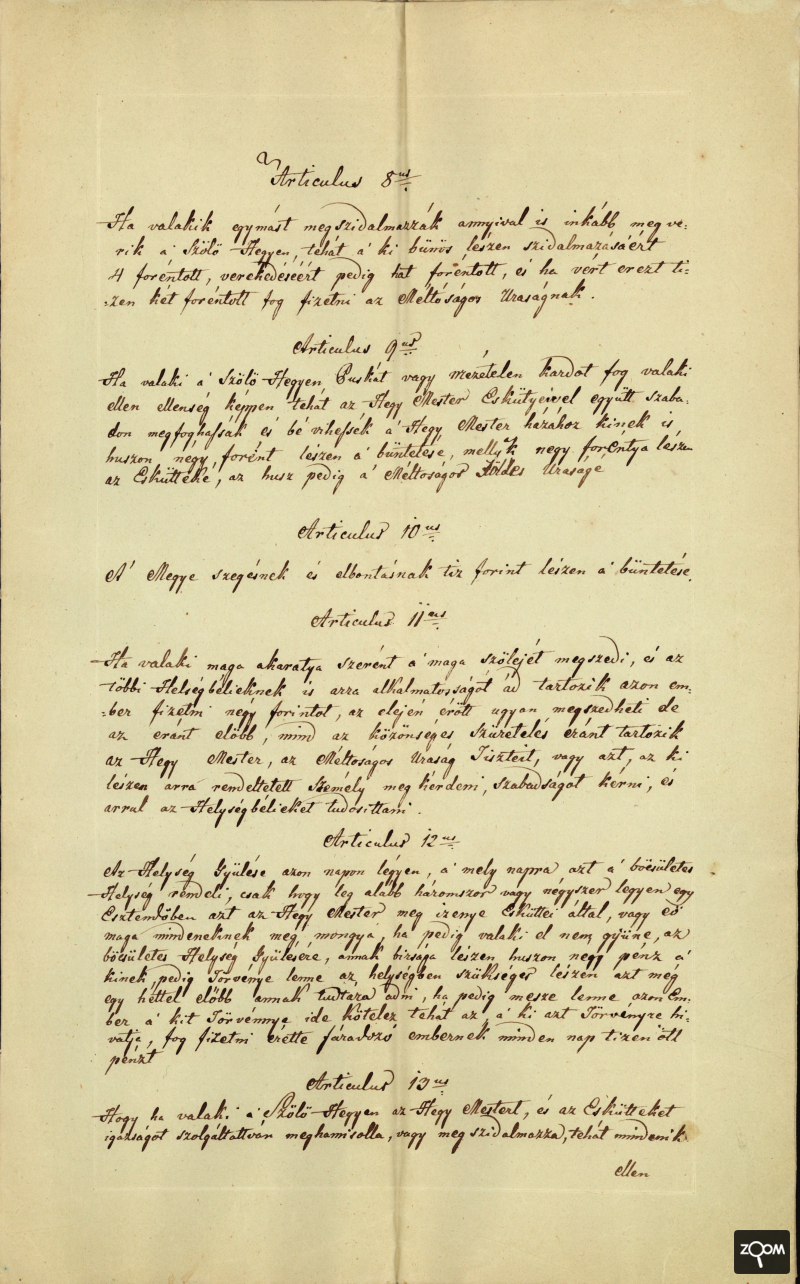 Articulus 8us
Ha valakik egymást megszidalmazzák annyival is inkább meg ve-
rik a' Szölö Hegyen, tehát á ki bünös lészen szidalmazásáért
4 foréntott, verekedéséért pedig hat foréntott, és ha vért erezt ti-
zen két foréntott fog fizetni az Méltóságos Uraságnak.
Articulus 9us
Ha valaki a' Szölö Hegyen Puskát vagy mezételen kardot fog valaki
ellen ellenség képpen tehát az Hegy Mester Eskütyeivel együtt szaba-
don megfoghassák és bé vihessék á Hegy Mester házához kinek is
huszon négy forént lészen á büntetése, mellyk négy foréntya leszen
az Eskütteké, az husz pedig á Méltoságos Földes Uraságé
Articulus 10us
A' Megye szegésnek és elbontásnak tiz forint lészen á büntetése.
Articulus 11us
Ha valaki maga akaratya szerént á maga szölejét megszedi, és az
többi Helségbélieknek is arra alkalmatosságot ád tartozik azon em-
ber fizetni négy forintot, az elején érött ugyan megszedheti de
az eránt elöbb, mind az közönséges Szüretelés eránt tartozik
az Hegy Mester, az Méltoságos Uraság Tiszteit, vagy azt, az ki
lészen arra rendeltetett Személy meg kérdeni, szabadságot kérni, és
arrul az Helységbélieket tudósittani.
Articulus 12us
Az Helység Gyülése azon napon légyen, á mely napra azt á böcsületes
Helység rendeli, csak hogy leg alább háromszor vagy négyszer legyen egy
Esztendöben azt az Hegy Mester meg izenye Esküttei által, vagy eö
maga mindeneknek még mongya, ha pedig valaki el nem gyüne, az
böcsületes Helység Gyülésére, annak birsága lészen huszon negy pénz á
kinek pedig Törvénye lenne az helységben szükséges lészen azt még
egy héttel elöbb annak tudtára adni, ha pedig mesze lenne azon Em-
ber á kit Törvénnye ide kötelez tehát az á ki azt Törvényre hi-
vatja, fog fizetni érötte fáradozó embernek minden nap tizen ött
pénzt
Articulus 13us
Hogy ha valaki á Szölö Hegyen az Hegy Mestert, és az Eskütteket
igasságot szolgáltattván meghamisolla, vagy meg szidalmazza, tehát mindenik
ellen
ZOOM